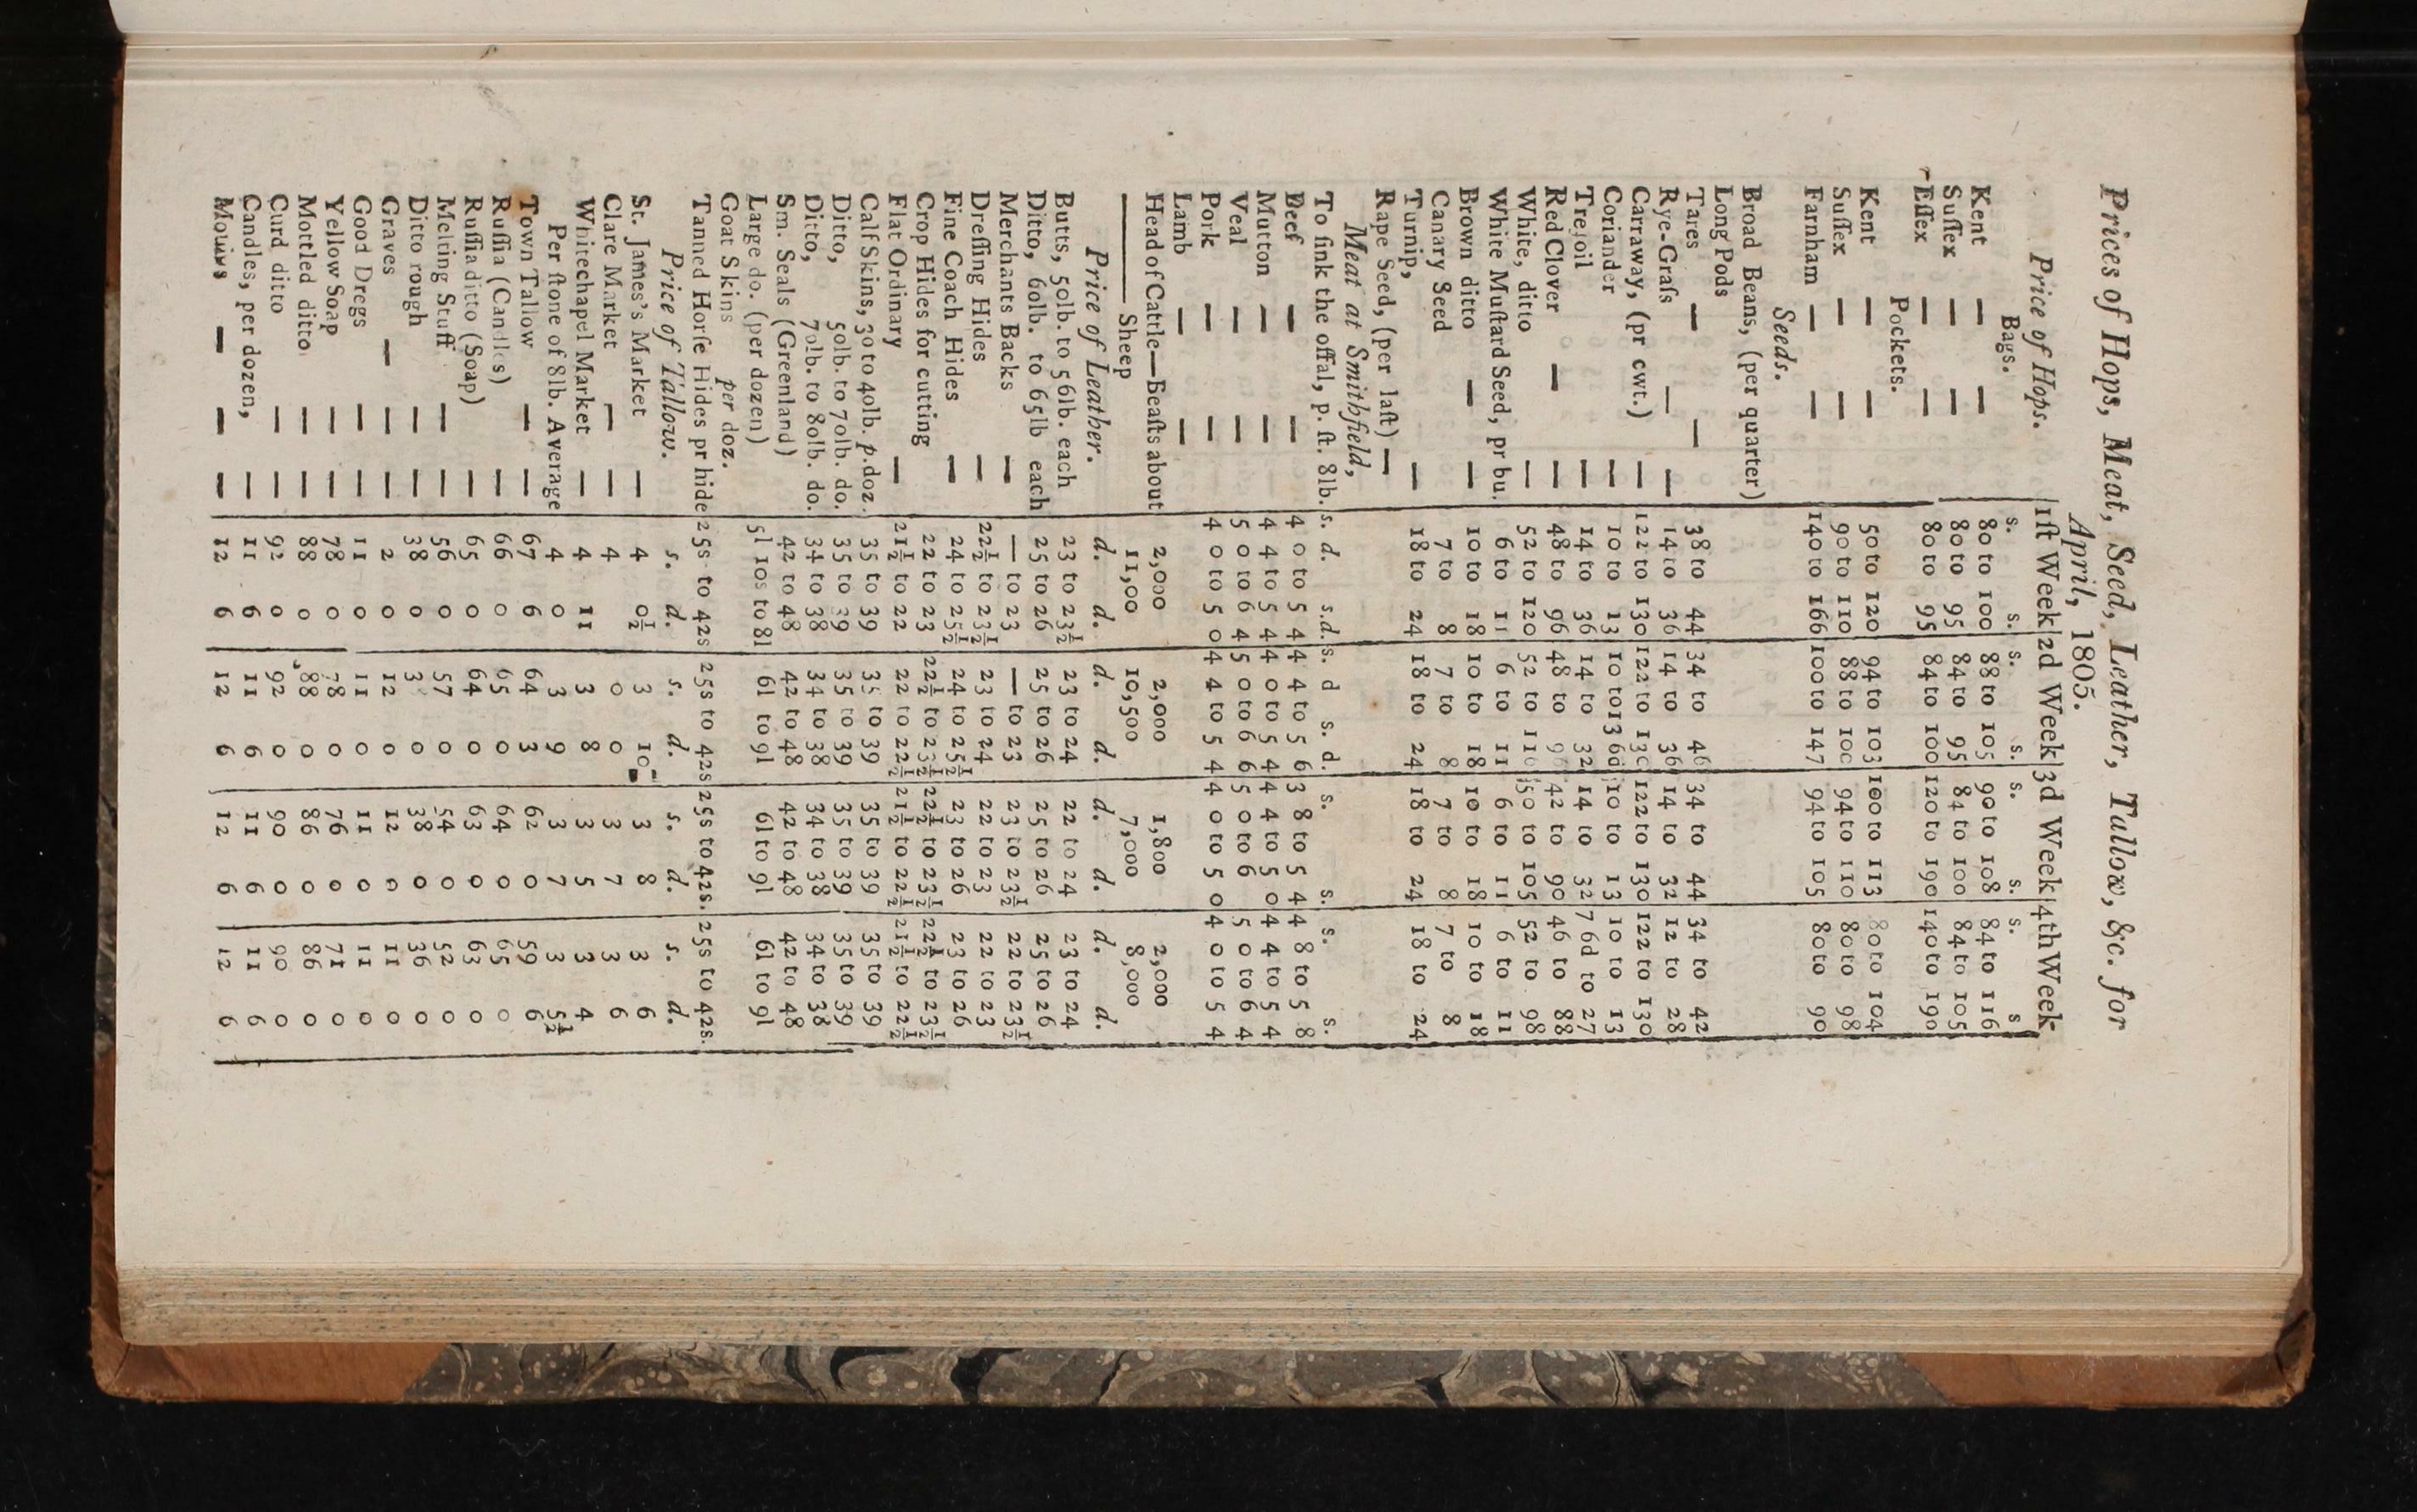 Prices of Hops, Meat, Seed, Leather, Tallow, &c. for
April, 1805.
Price of Hops. 1ſt Week 2d Week 3d Week 4th Week
Bags. s. s. s. s. s. s. s. s
Kent — — 80 to 100 88 to 105 90 to 108 84 to 116
Suſſex — — 80 to 95 84 to 95 84 to 100 84 to 105
Eſſex — — 80 to 95 84 to 100 120 to 190 140 to 190
Pockets.
Kent — — 50 to 120 94 to 103 100 to 113 80 to 104
Suſſex — — 90 to 110 88 to 100 94 to 110 80 to 98
Farnham — — 140 to 166 100 to 147 94 to 105 80 to 90
Seeds.
Broad Beans, (per quarter)
Long Pods
Tares — — 38 to 44 34 to 46 34 to 44 34 to 42
Rye-Graſs — — 14 to 36 14 to 36 14 to 32 12 to 28
Carraway, (pr cwt.) — 122 to 130 122 to 130 122 to 130 122 to 130
Coriander — 10 to 13 10 to 13 6d 10 to 13 10 to 13
Trefoil — 14 to 36 14 to 32 14 to 32 7 6d to 27
Red Clover — — 48 to 96 48 to 42 to 90 46 to 88
White, ditto — 52 to 120 52 to 50 to 105 52 to 98
White Muſtard Seed, pr bu. 6 to 11 6 to 11 6 to 11 6 to 11
Brown ditto — — 10 to 18 10 to 18 10 to 18 10 to 18
Canary Seed 7 to 8 7 to 8 7 to 8 7 to 8
Turnip, — 18 to 24 18 to 24 18 to 24 18 to 24
Rape Seed, (per laſt) —
Meat at Smithfield,
To ſink the offal, p. ſt. 8lb. s. d. s. d. s. d s. d. s. s. s. s.
Beef — — 4 0 to 5 4 4 4 to 5 6 3 8 to 5 4 4 8 to 5 8
Mutton — — 4 4 to 5 4 4 0 to 5 4 4 4 to 5 0 4 4 to 5 4
Veal — — 5 0 to 6 4 5 0 to 6 6 5 0 to 6 5 0 to 6 4
Pork — — 4 0 to 5 0 4 4 to 5 4 4 0 to 5 0 4 0 to 5 4
Lamb — —
Head of Cattle—Beaſts about 2,000 2,000 1,800 2,000
——— Sheep 11,00 10,500 7,000 8,000
Price of Leather. d. d. d. d. d. d. d. d.
Butts, 50lb. to 56lb. each 23 to 23½ 23 to 24 22 to 24 23 to 24
Ditto, 60lb. to 65lb each 25 to 26 25 to 26 25 to 26 25 to 26
Merchants Backs — — to 23 — to 23 23 to 23½ 22 to 23½
Dreſſing Hides — 22½ to 23½ 23 to 24 22 to 23 22 to 23
Fine Coach Hides — 24 to 25½ 24 to 25½ 23 to 26 23 to 26
Crop Hides for cutting 22 to 23 22½ to 23½ 22½ to 23½ 22½ to 23½
Flat Ordinary — 21½ to 22 22 to 22½ 21½ to 22½ 21½ to 22½
Calf Skins, 30 to 40lb. p.doz. 35 to 39 35 to 39 35 to 39 35 to 39
Ditto, 50lb. to 70lb. do. 35 to 39 35 to 39 35 to 39 35 to 39
Ditto, 70lb. to 80lb. do. 34 to 38 34 to 38 34 to 38 34 to 38
Sm. Seals (Greenland) 42 to 48 42 to 48 42 to 48 42 to 48
Large do. (per dozen) 5l 10s to 8l 6l to 9l 6l to 9l 6l to 9l
Goat Skins per doz.
Tanned Horſe Hides pr hide 25s to 42s 25s to 42s 25s to 42s. 25s to 42s.
Price of Tallow. s. d. s. d. s. d. s. d.
St. James's Market — 4 0½ 3 10 3 8 3 6
Clare Market — — 4 0 0 3 7 3 6
Whitechapel Market — 4 11 3 8 3 5 3 4
Per ſtone of 8lb. Average 4 0 3 9 3 7 3 5½
Town Tallow — — 67 6 64 3 62 0 59 6
Ruſſia (Candles) — 66 0 65 0 64 0 65 0
Ruſſia ditto (Soap) — 65 0 64 0 63 0 63 0
Melting Stuff — — 56 0 57 0 54 0 52 0
Ditto rough — — 38 0 3 0 38 0 36 0
Graves — — — 2 0 12 0 12 0 11 0
Good Dregs — — 11 0 11 0 11 0 11 0
Yellow Soap — — 78 0 78 0 76 0 71 0
Mottled ditto — — 88 0 88 0 86 0 86 0
Curd ditto — — 92 0 92 0 90 0 90 0
Candles, per dozen, — 11 6 11 6 11 6 11 6
Moulds — — — 12 6 12 6 12 6 12 6